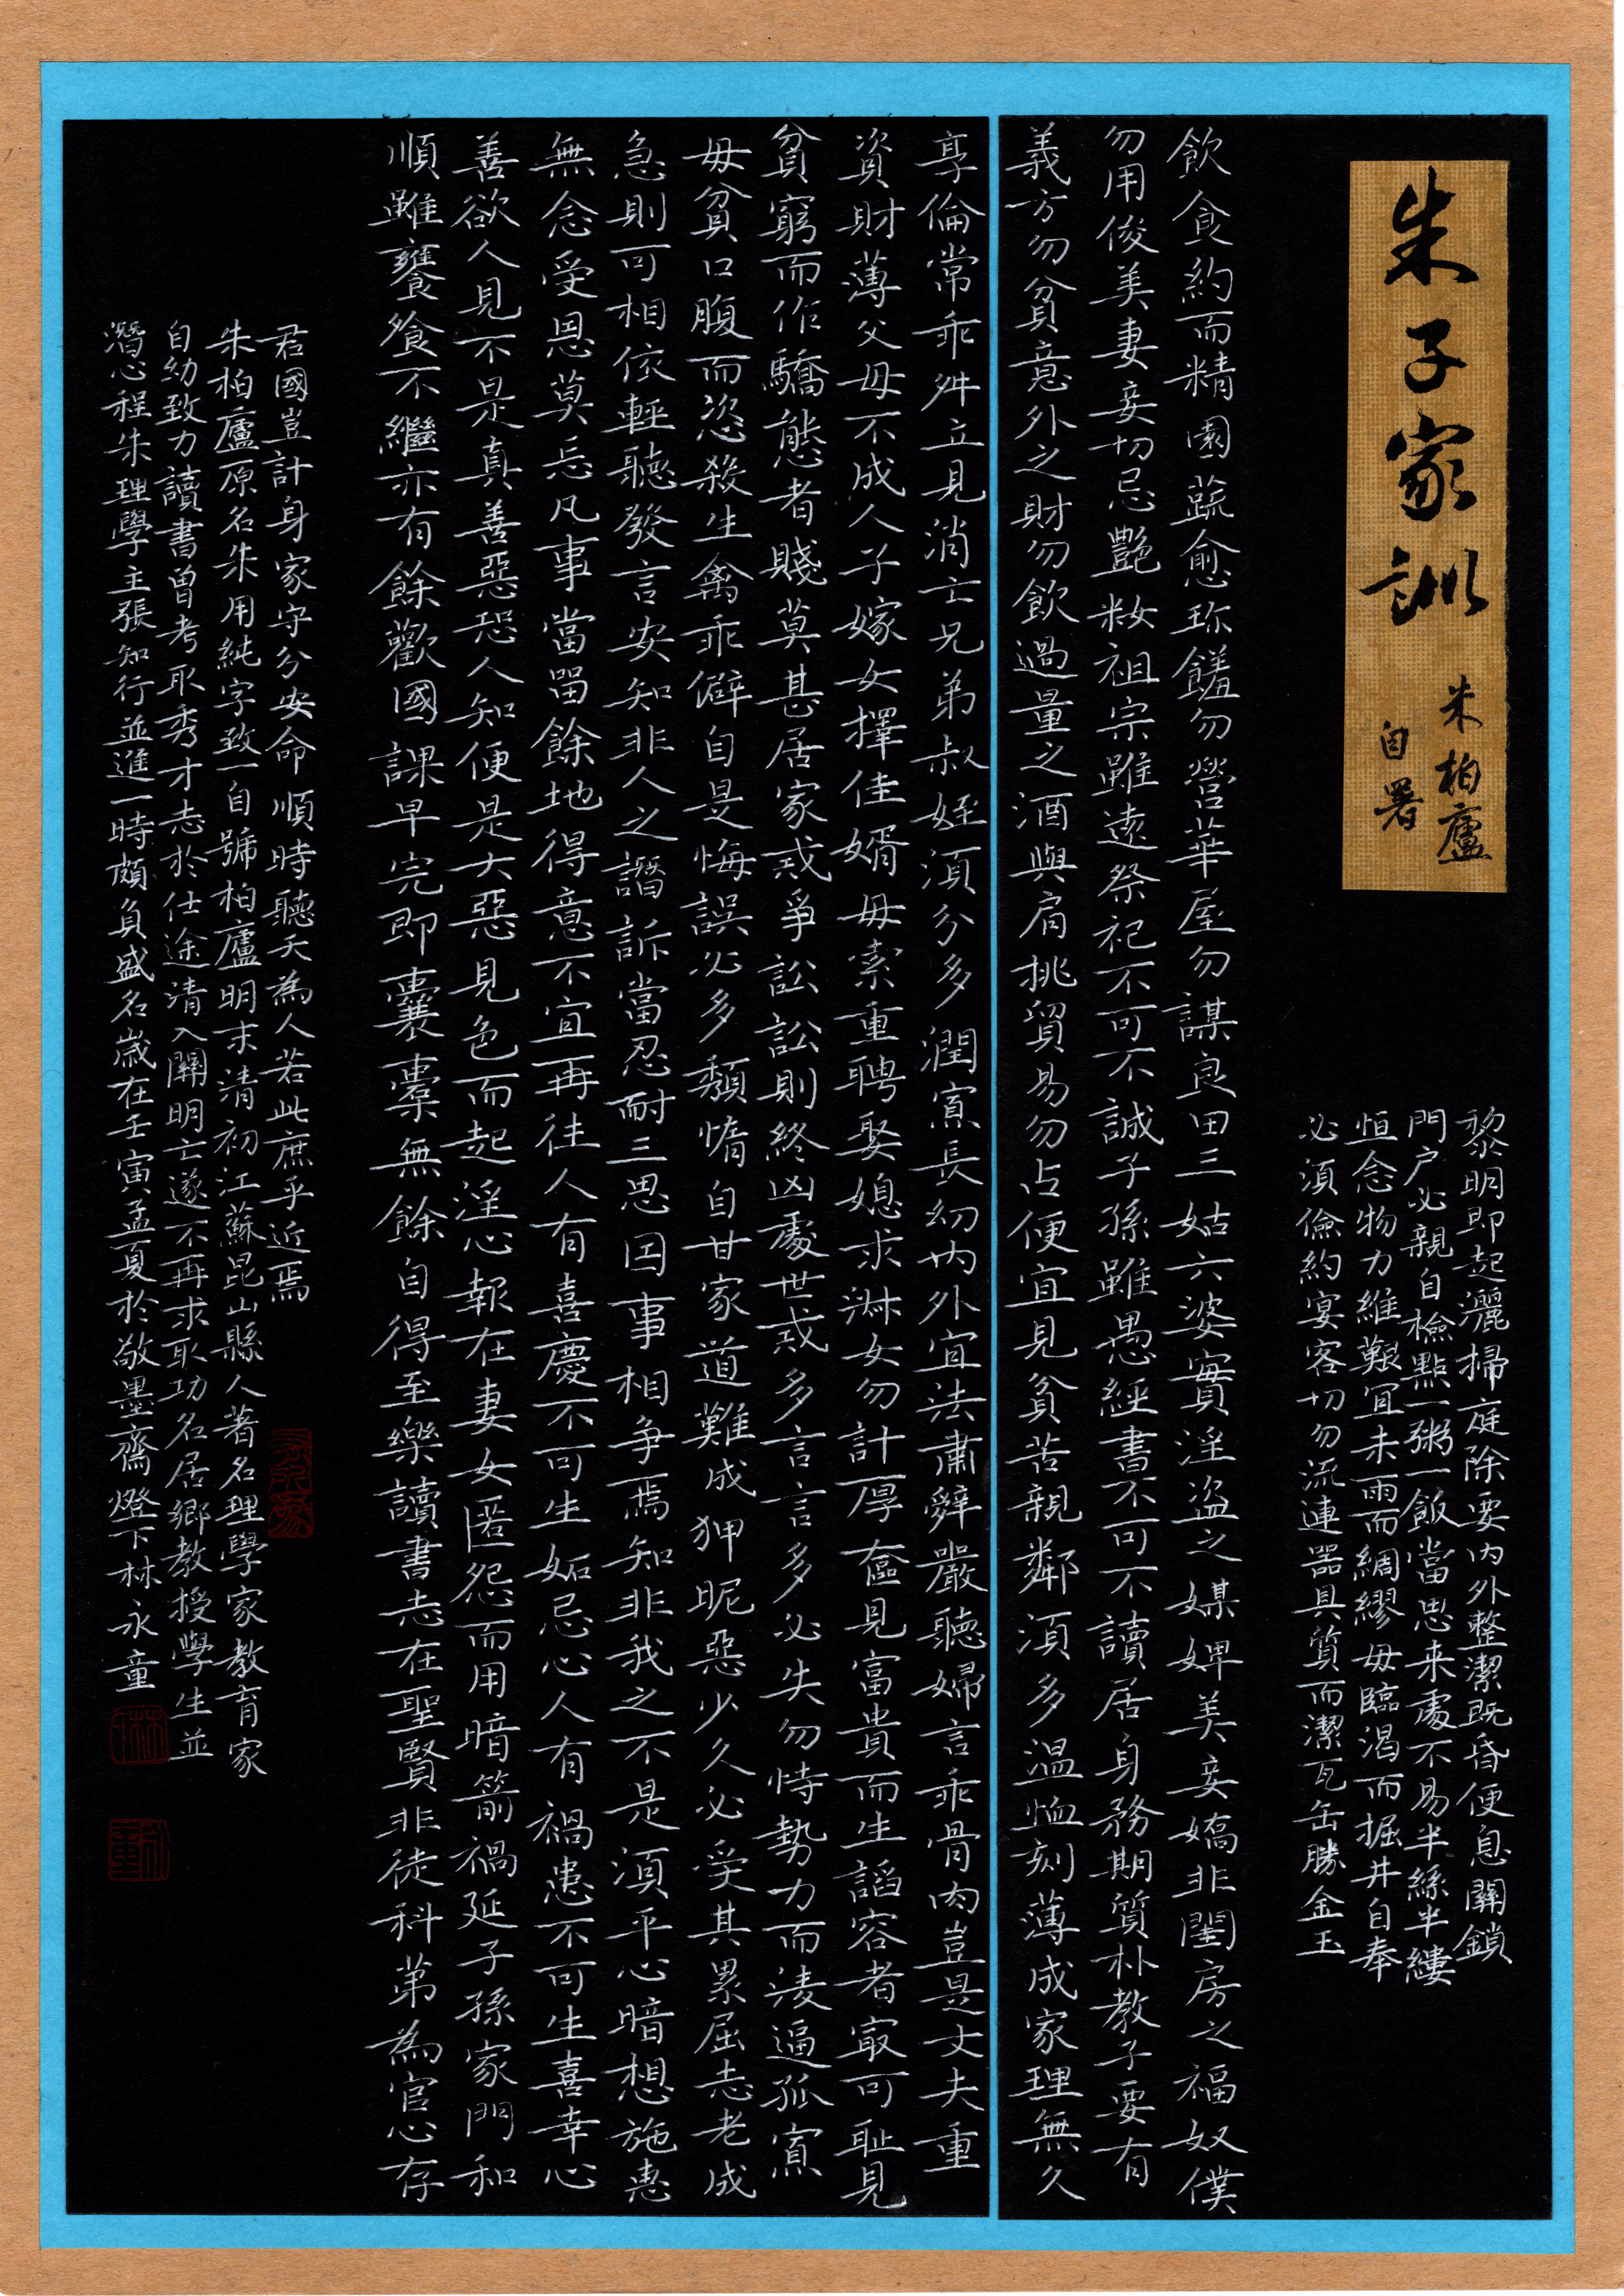 朱子家訓
朱柏廬
自署
黎明即起灑掃庭除要內外整潔既昏便息關鎖
門户必親自檢點一粥一飯當思来處不易半絲半縷
恒念物力維艱宜未雨而綢繆毋臨渴而掘井自奉
必須儉約宴客切勿流連器具質而潔瓦缶勝金玉
飲食約而精園蔬愈珎饈勿營華屋勿謀良田三姑六婆實淫盜之媒婢美妾嬌非閨房之福奴僕
勿用俊美妻妾切忌艷粧祖宗雖遠祭祀不可不誠子孫雖愚經書不可不讀居身務期質朴教子要有
義方勿貧意外之財勿飲過量之酒與肩挑貿易勿占便宜見貧苦親鄰須多温恤刻薄成家理無久
享倫常乖舛立見消亡兄弟叔姪須分多潤寡長幼內外宜法肅辭嚴聽婦言乖骨肉豈是丈夫重
資財薄父母不成人子嫁女擇佳婿毋索重聘娶媳求淑女勿計厚奩見富貴而生諂容者寂可耻見
貧窮而作驕態者賤莫甚居家戒爭訟訟則終凶處世戒多言言多必失勿恃勢力而淩逼孤寡
毋貧口腹而恣殺生禽乖僻自是悔誤必多頹惰自甘家道難成狎昵惡少久必受其累屈志老成
急則可相依輕聽發言安知非人之譖訴當忍耐三思因事相争焉知非我之不是湏平心暗想施惠
無念受恩莫忘凡事當畱餘地得意不宜再往人有喜慶不可生妬忌心人有禍患不可生喜幸心
善欲人見不是真善惡恐人知便是大惡見色而起淫心報在妻女匿怨而用暗箭禍延子孫家門和
順雖饔飧不繼亦有餘歡國課早完即囊橐無餘自得至樂讀書志在聖賢非徒科第為官心存
君國豈計身家守分安命順時聽天為人若此庶乎近焉
朱柏廬原名朱用純字致一自號柏廬明末清初江蘇昆山縣人著名理學家教育家
自幼致力讀書曾考取秀才志於仕途清入關明亡遂不再求取功名居鄉教授學生並
潛心程朱理學主張知行並進一時頗負盛名歲在壬寅孟夏於敬墨齋燈下林永童